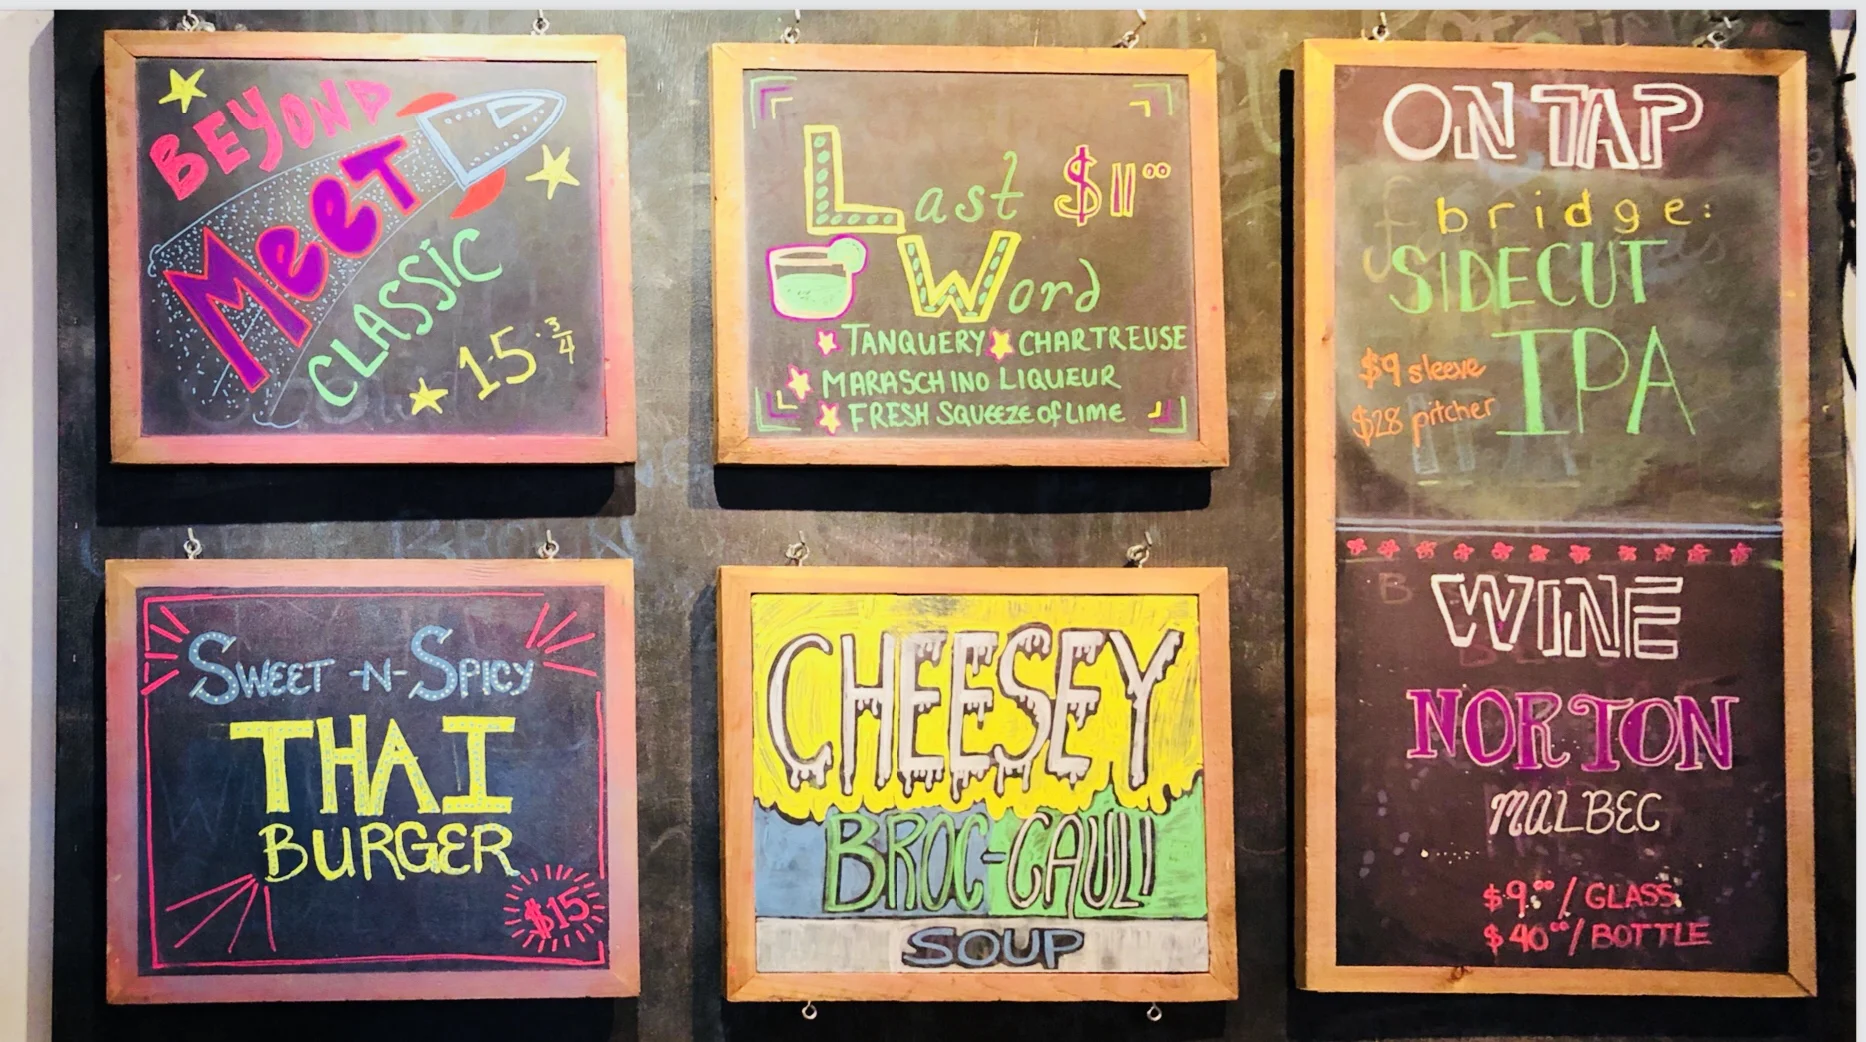 BEYOND
MEET
CLASSIC
15.3/4
Last $11⁰⁰
Word
TANQUERY CHARTREUSE
MARASCHINO LIQUEUR
FRESH SQUEEZE of LIME
SWEET -N- SPICY
THAI
BURGER
$15
CHEESEY
BROC-CAULI
SOUP
ON TAP
bridge:
SIDECUT
IPA
$9 sleeve
$28 pitcher
WINE
NORTON
MALBEC
$9.⁰⁰/GLASS
$40⁰⁰/BOTTLE